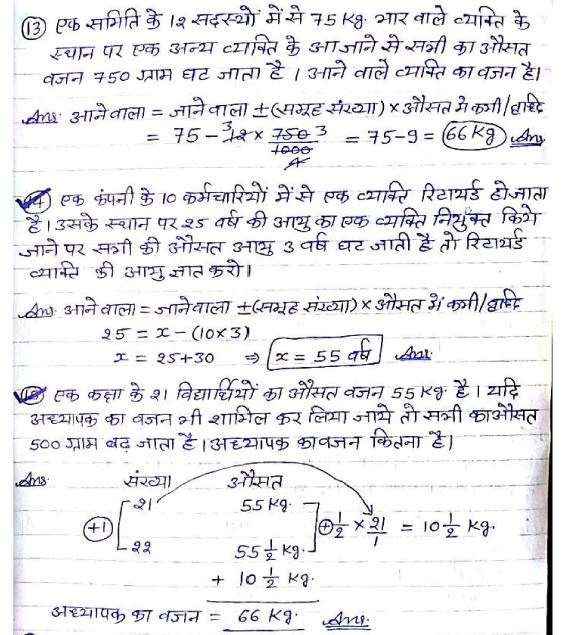 (13) एक समिति के 12 सदस्यों में से 75 Kg. भार वाले व्यक्ति के
स्थान पर एक अन्य व्यक्ति के आ जाने से सभी का औसत
वजन 750 ग्राम घट जाता है। आने वाले व्यक्ति का वजन है।
Ans. आने वाला = जाने वाला ± (समूह संख्या) × औसत में कमी/वृद्धि
= 75 - 12 3 × 750 3 / 1000 4 = 75 - 9 = 66 Kg Ans
(14) एक कंपनी के 10 कर्मचारियों में से एक व्यक्ति रिटायर्ड हो जाता
है। उसके स्थान पर 25 वर्ष की आयु का एक व्यक्ति नियुक्त किये
जाने पर सभी की औसत आयु 3 वर्ष घट जाती है तो रिटायर्ड
व्यक्ति की आयु ज्ञात करो।
Ans. आने वाला = जाने वाला ± (समूह संख्या) × औसत में कमी/वृद्धि
25 = x - (10×3)
x = 25+30 ⇒ x = 55 वर्ष Ans.
(15) एक कक्षा के 21 विद्यार्थियों का औसत वजन 55 Kg है। यदि
अध्यापक का वजन भी शामिल कर लिया जाये तो सभी का औसत
500 ग्राम बढ़ जाता है। अध्यापक का वजन कितना है।
Ans. संख्या औसत
21 55 Kg.
+1 + 1/2 × 21/1 = 10 1/2 Kg.
22 55 1/2 Kg.
+ 10 1/2 Kg.
अध्यापक का वजन = 66 Kg. Ans.